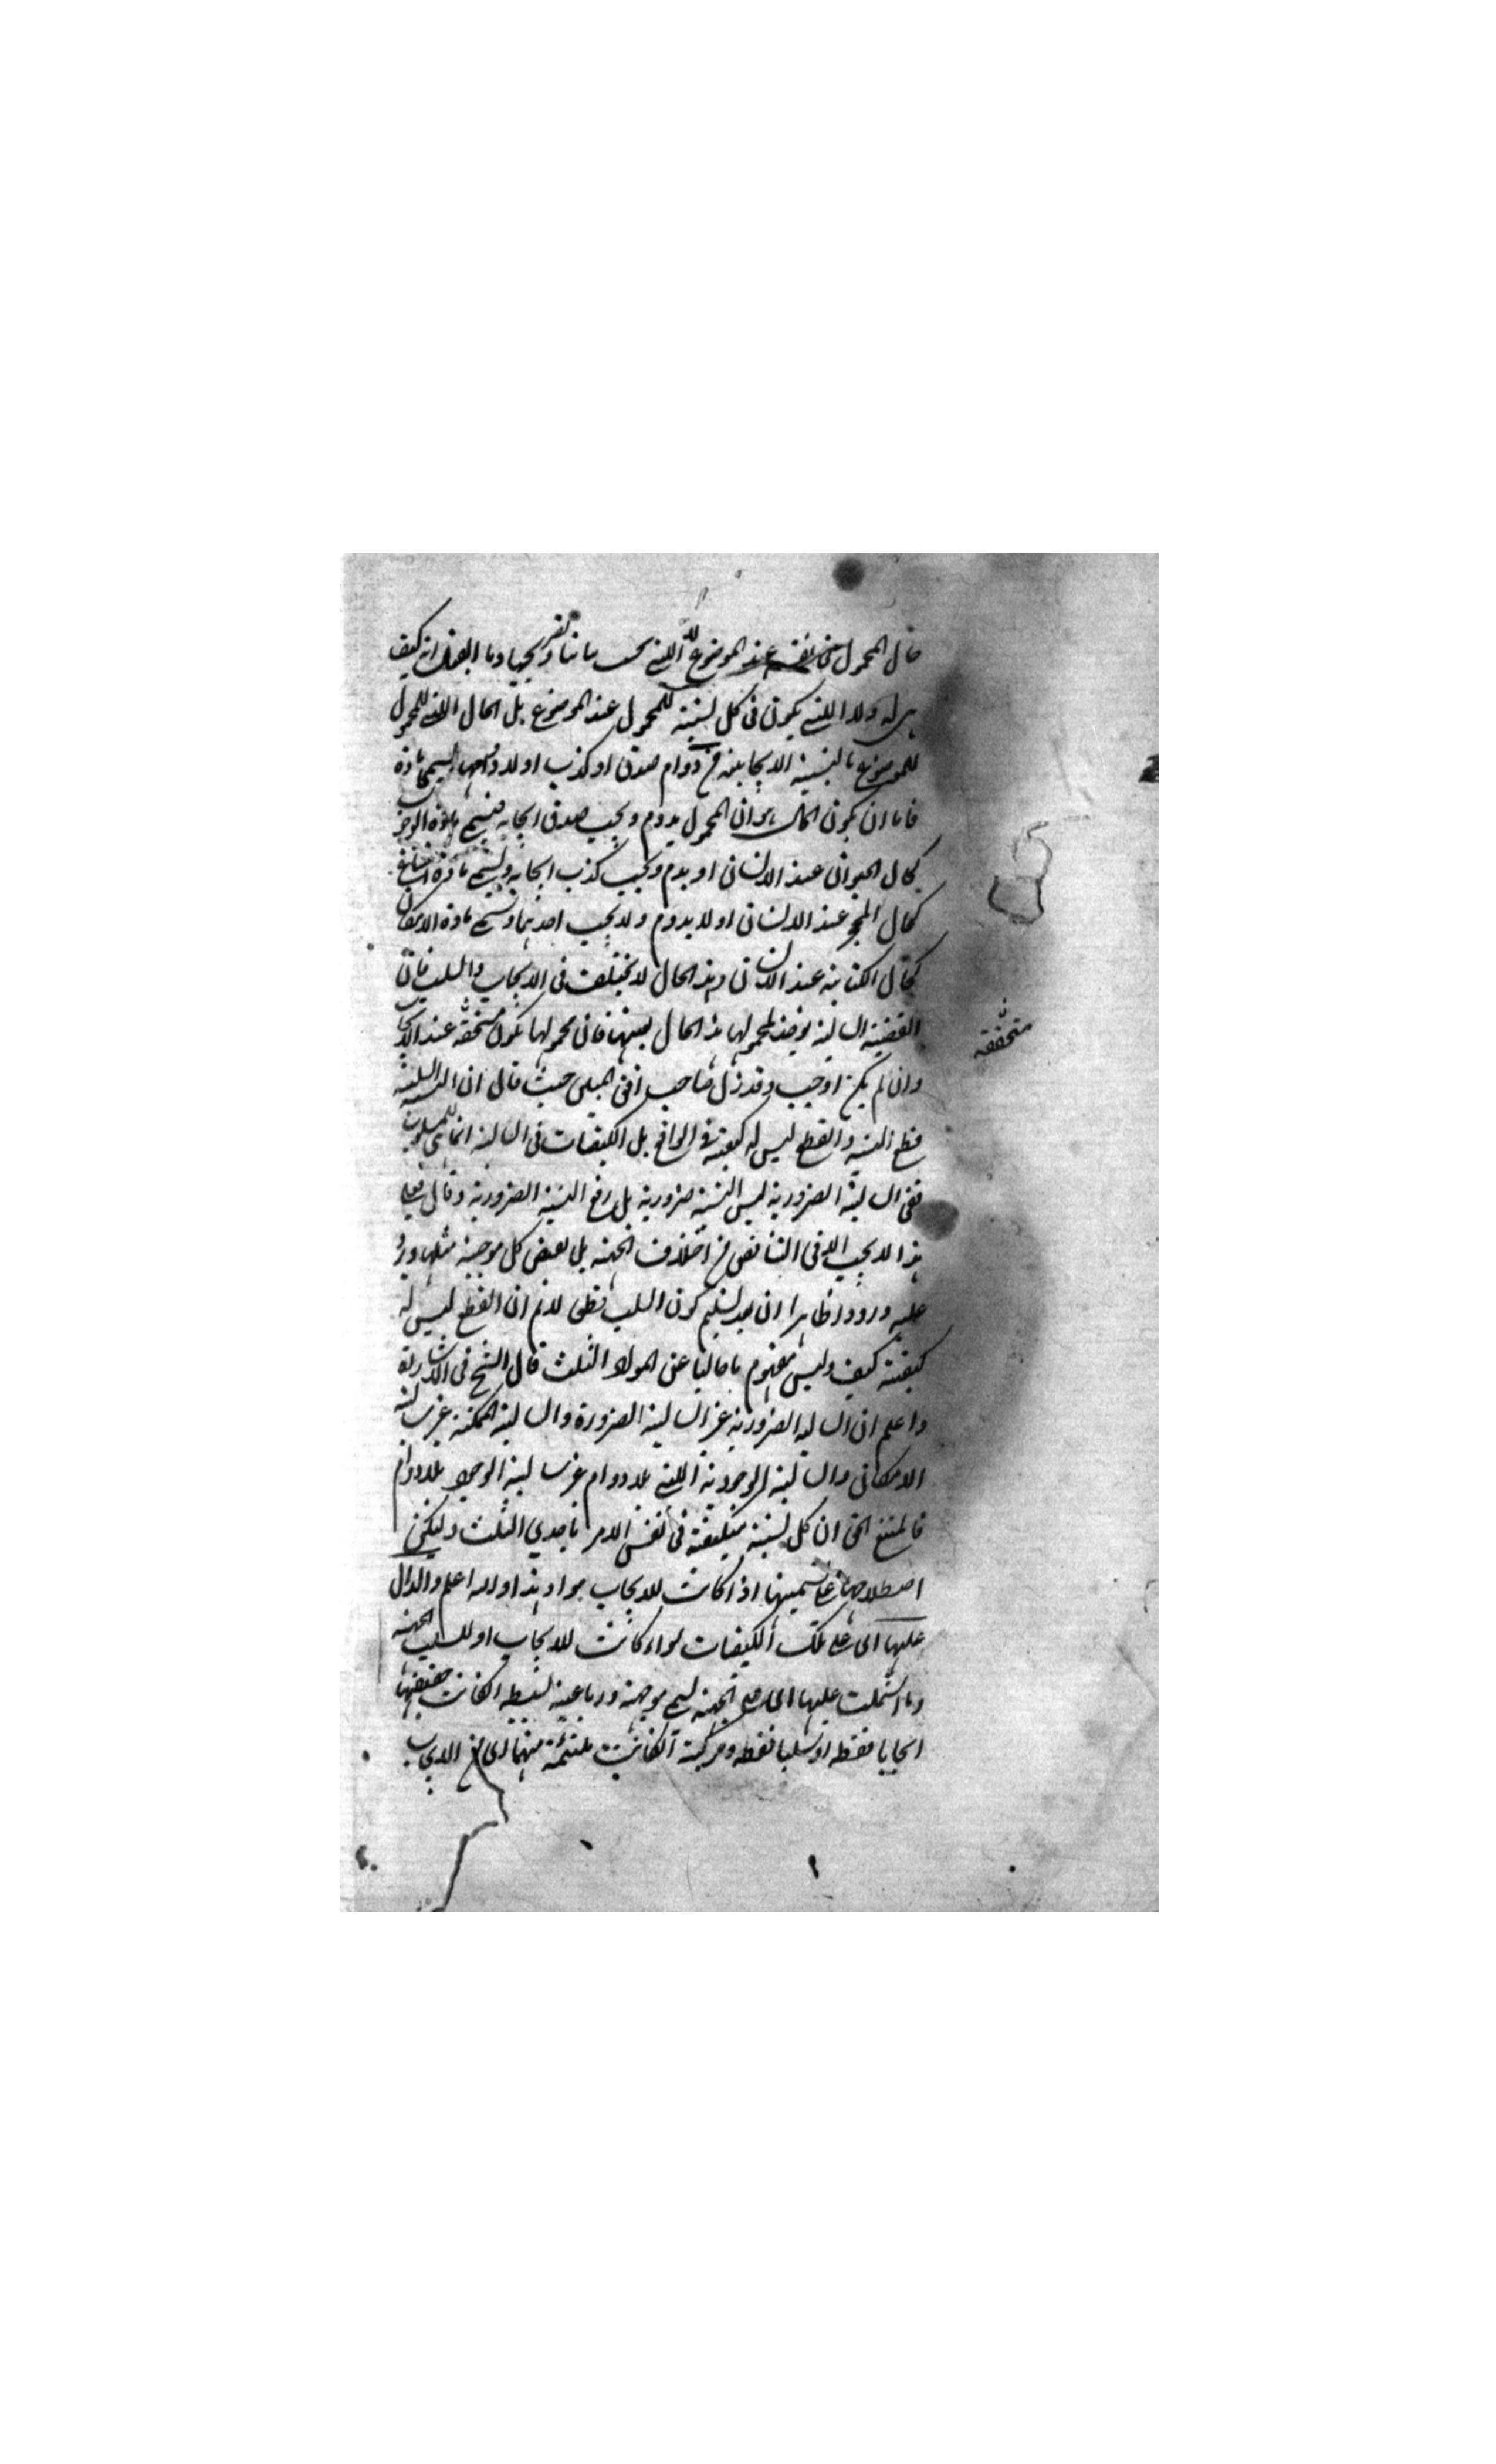 حال المحمول في نفسه عند الموضوع لا التي بحسب بياننا وتصريحنا وما بالفعل انه كيف
هي له ولا التي يكون في كل نسبة للمحمول عند الموضوع بل الحال التي للمحمول
للموضوع بالنسبة الايجابية من دوام صدق او كذب او لا دوامهما يسمى مادة
فاما ان يكون الحال هو ان المحمول يدوم ويجب صدق ايجابه فيسمى مادة الوجوب
كحال الحيوان عند الانسان او يدوم ويجب كذب ايجابه ويسمى مادة الامتناع
كحال الحجر عند الانسان او لا يدوم ولا يجب احدهما ويسمى مادة الامكان
كحال الكتابة عند الانسان وهذا الحال لا يختلف في الايجاب والسلب فان
القضية السالبة يوجد لمحمولها هذا الحال بعينها فان محمولها يكون مستحقه عند الايجاب
متحققه
وان لم يكن اوجب وقد زل صاحب افق المبين حيث قال ان النسبة السلبية
قطع النسبة والقطع ليس له كيفية في الواقع بل الكيفيات في السالبة انما هي للمسلوب
ففي السالبة الضرورية ليس النسبة ضرورية بل رفع النسبة الضرورية وقال فعلى
هذا لا يجب في التناقض من اختلاف الجهة بل نقيض كل موجبة مثلها ويرد
عليه ورودا ظاهرا ان بعد تسليم كون السلب قطعا لا نم ان القطع ليس له
كيفية كيف وليس مفهوم ما خاليا عن المواد الثلث قال الشيخ في الاشارة
واعلم ان السالبة الضرورية غير السالبة الضرورة والسالبة الممكنة غير سالبة
الامكان والسالبة الوجودية التي بلا دوام غير سالبة الوجود بلا دوام
فالمتبع الحق ان كل نسبة متكيفة في نفس الامر باحدي الثلث وليكن
اصطلاحهم على تسميتها اذا كانت للايجاب مواد هذا والله اعلم والدال
عليها اي على تلك الكيفيات سواء كانت للايجاب او للسلب الجهة
وما اشتملت عليها اي على الجهة يسمى موجهة ورباعية بسيطة ان كانت حقيقتها
ايجابا فقط او سلبا فقط ومركبة ان كانت ملتئمة منهما اي من الايجاب